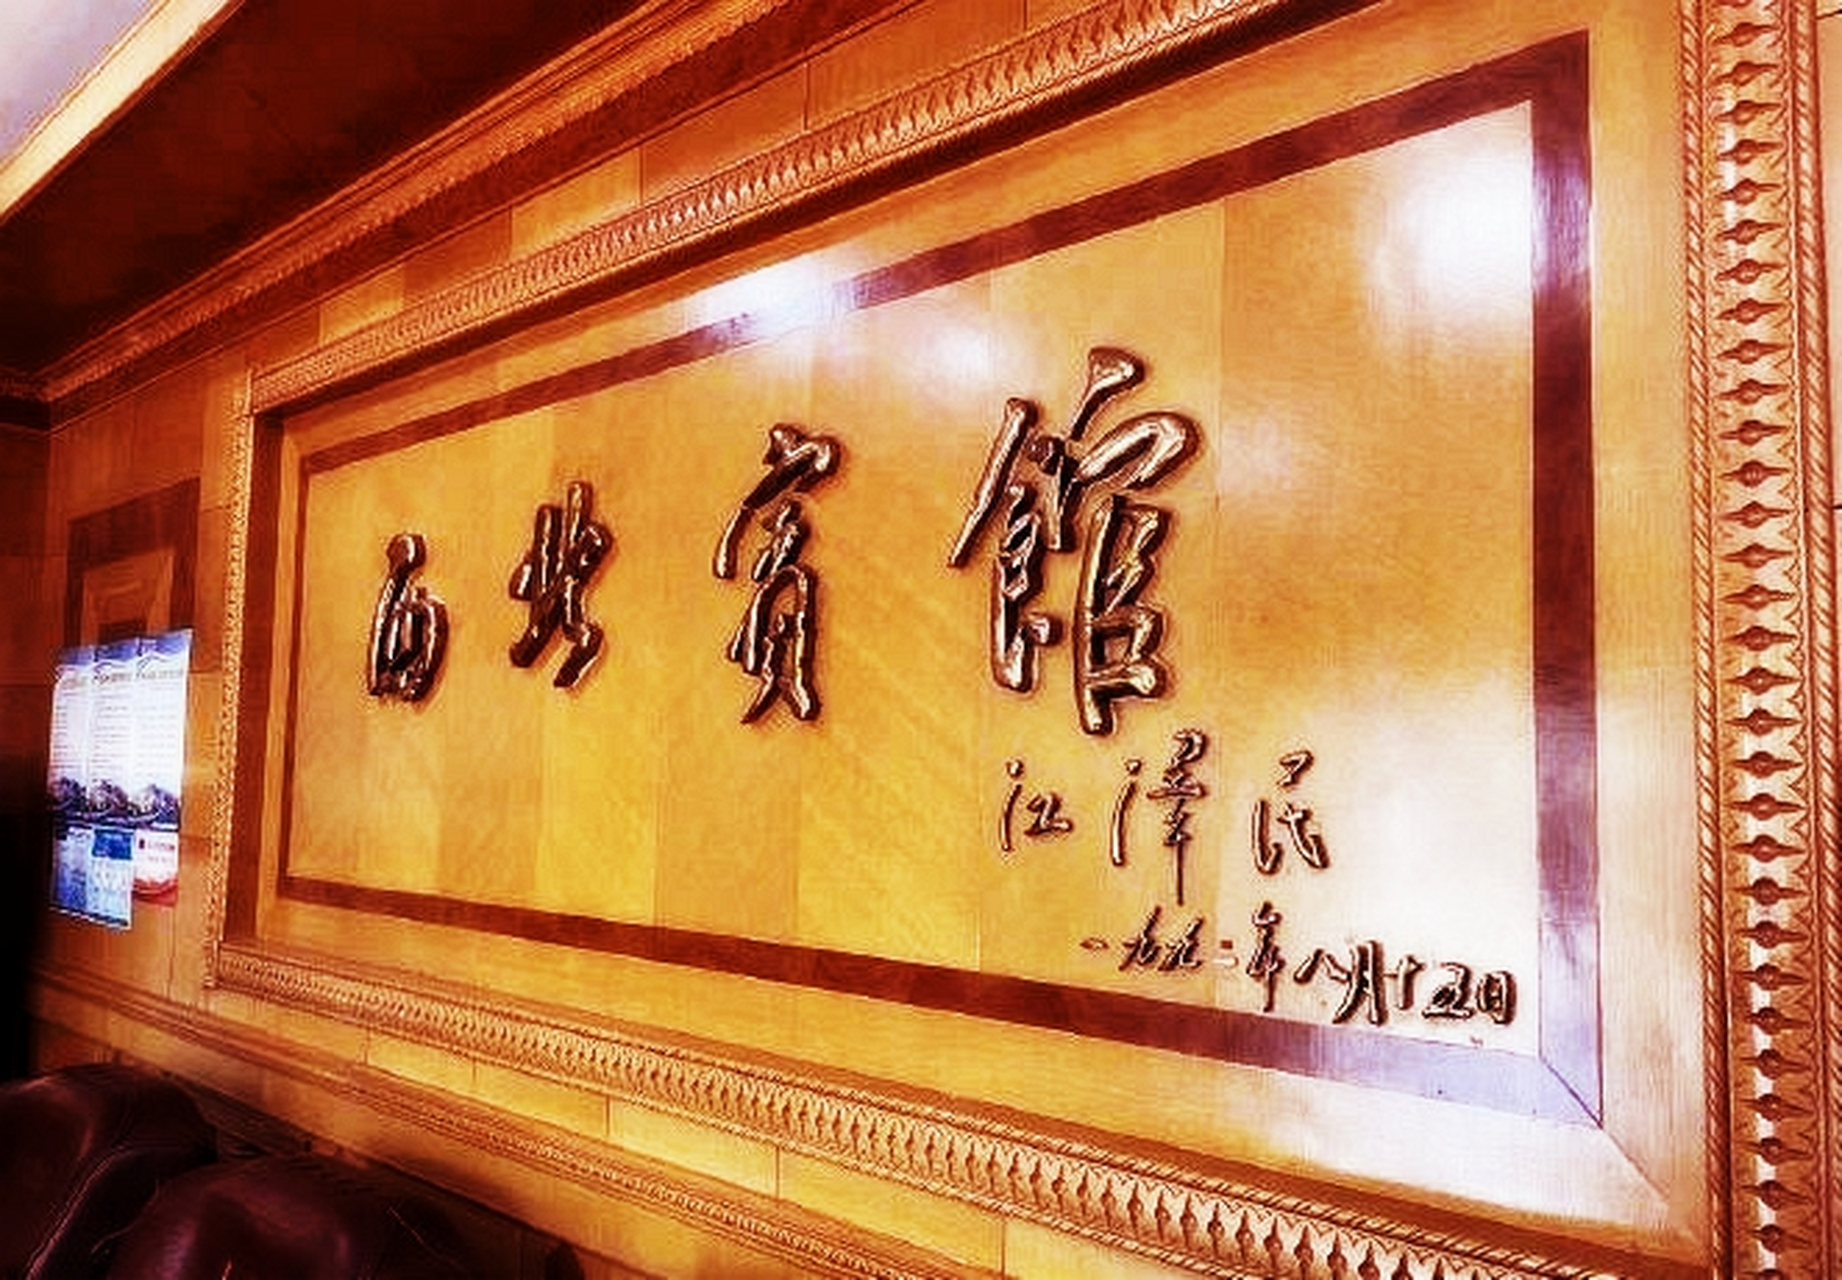 西北賓館
江澤民
一九九二年八月十五日